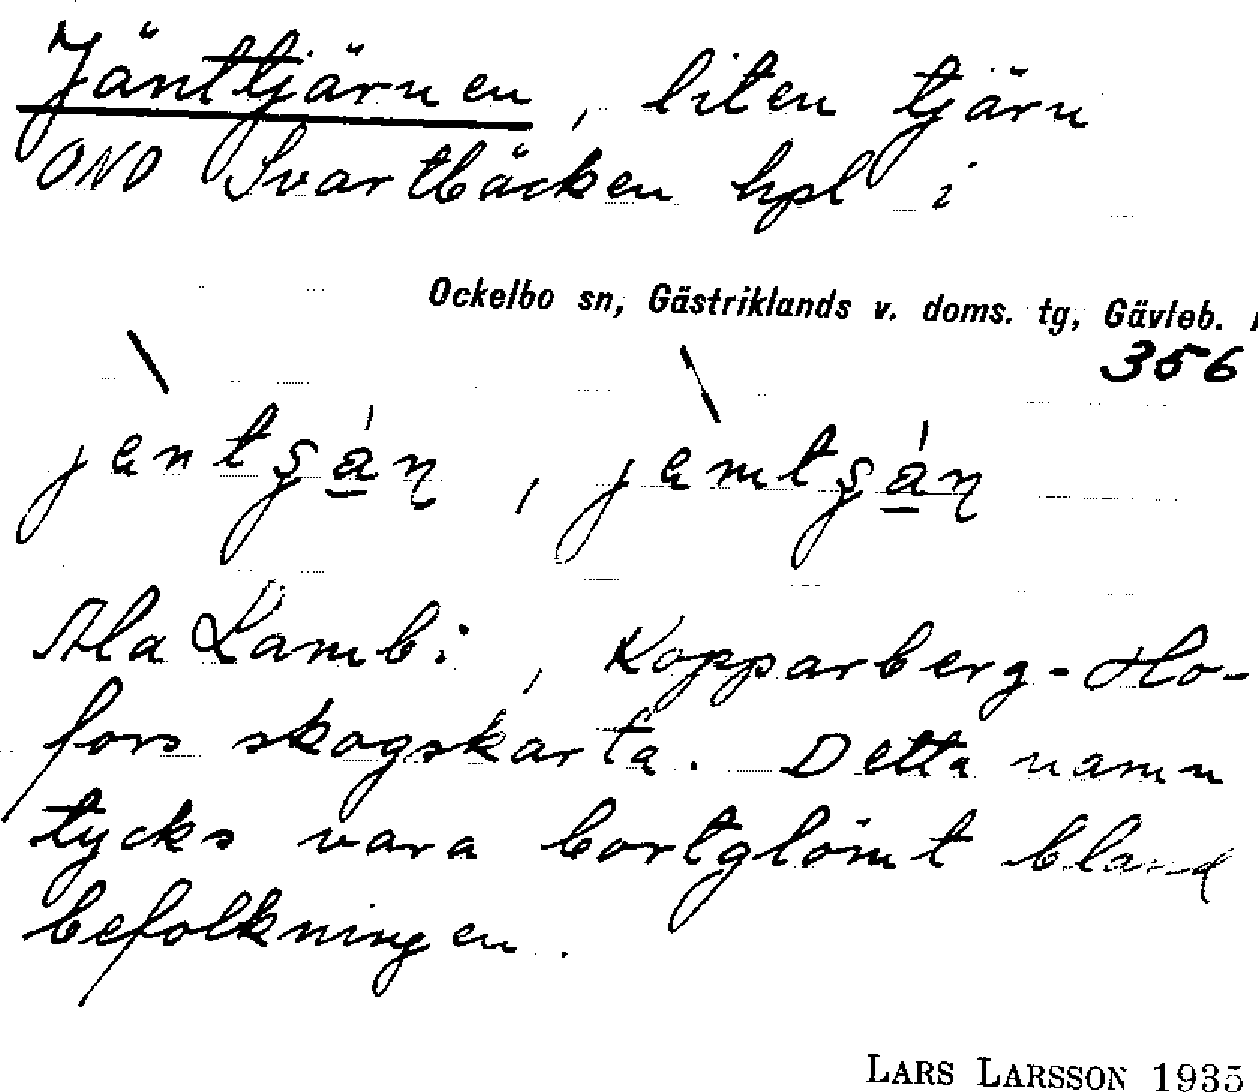 Jänttjärnen, liten tjärn
ONO Svartbäcken hpl i
Ockelbo sn, Gästriklands v. doms. tg, Gävleb.
356
Ala Lambi, Kopparberg-Ho-
fors skogskarta. Detta namn
tycks vara bortglömt bland
befolkningen.
LARS LARSSON 1935